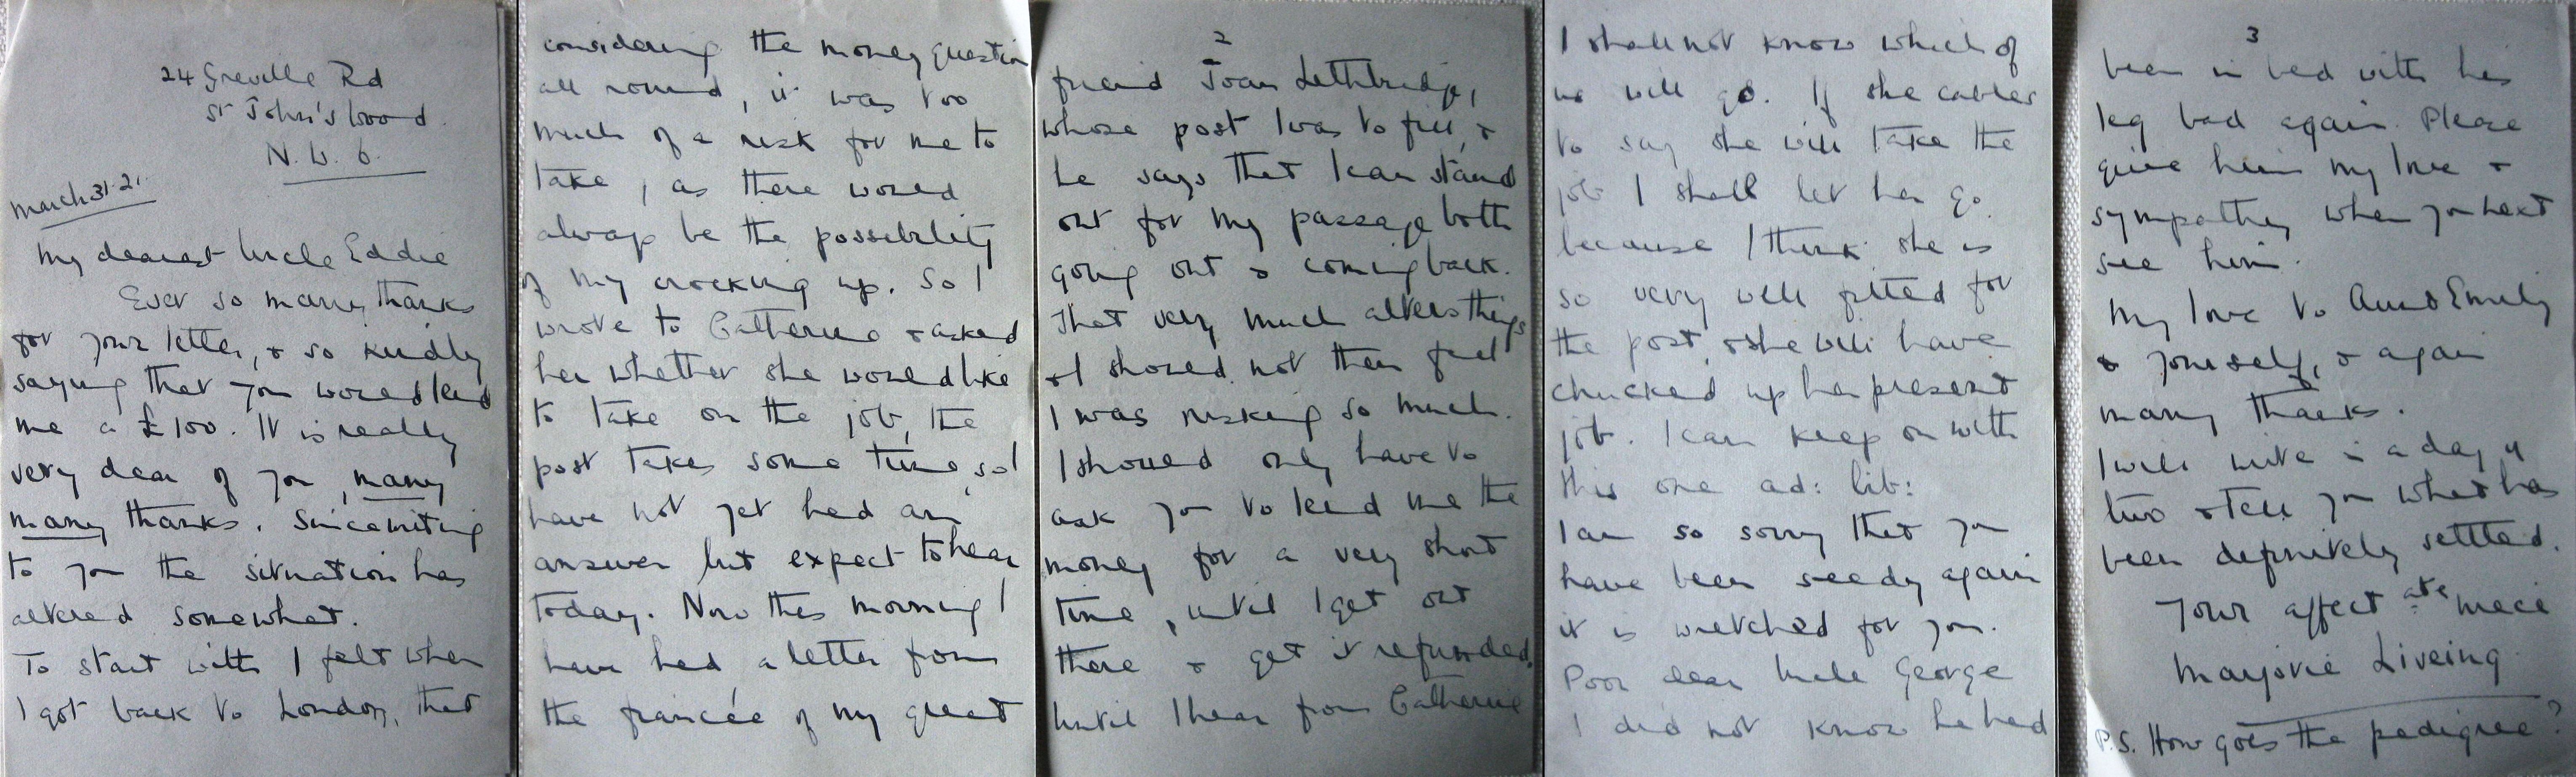 24 Greville Rd
St John's Wood.
N.W. 6.
March 31. 21.
My dearest Uncle Eddie
Ever so many thanks
for your letter, & so kindly
saying that you would lend
me a £100. It is really
very dear of you, many
many thanks. Since writing
to you the situation has
altered somewhat.
To start with I felt when
I got back to London, that
considering the money question
all round, it was too
much of a risk for me to
take, as there would
always be the possibility
of my crocking up. So I
wrote to Catherine & asked
her whether she would like
to take on the job, the
post takes some time, so I
have not yet had an
answer but expect to hear
today. Now this morning I
have had a letter from
the fiancée of my great
2
friend Joan Lethbridge,
whose post I was to fill, &
he says that I can stand
out for my passage both
going out & coming back.
That very much alters things
& I should not then feel
I was risking so much.
I should only have to
ask you to lend me the
money for a very short
time, until I get out
there & get it refunded.
Until I hear from Catherine
I shall not know which of
us will go. If she cables
to say she will take the
job I shall let her go
because I think she is
so very well fitted for
the post, & she will have
chucked up her present
job. I can keep on with
this one ad: lib:
I am so sorry that you
have been seedy again
it is wretched for you.
Poor dear Uncle George
I did not know he had
3
been in bed with his
leg bad again. Please
give him my love &
sympathy when you next
see him.
My love to Aunt Emily
& yourself, & again
many thanks.
I will write in a day or
two & tell you what has
been definitely settled.
Your affect ate niece
Marjorie Liveing
P.S. How goes the pedigree?